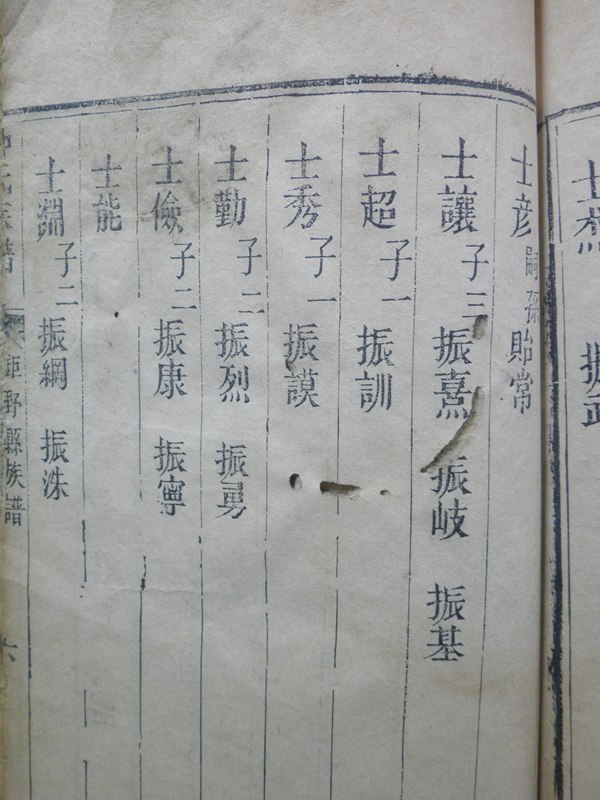 士 振武
士彦 嗣孫 貽常
士讓 子三 振熹 振岐 振基
士超 子一 振訓
士秀 子一 振謨
士勤 子二 振烈 振勇
士儉 子二 振康 振寧
士能
士淵 子二 振綱 振洙
氏族譜 鉅野縣族譜 六